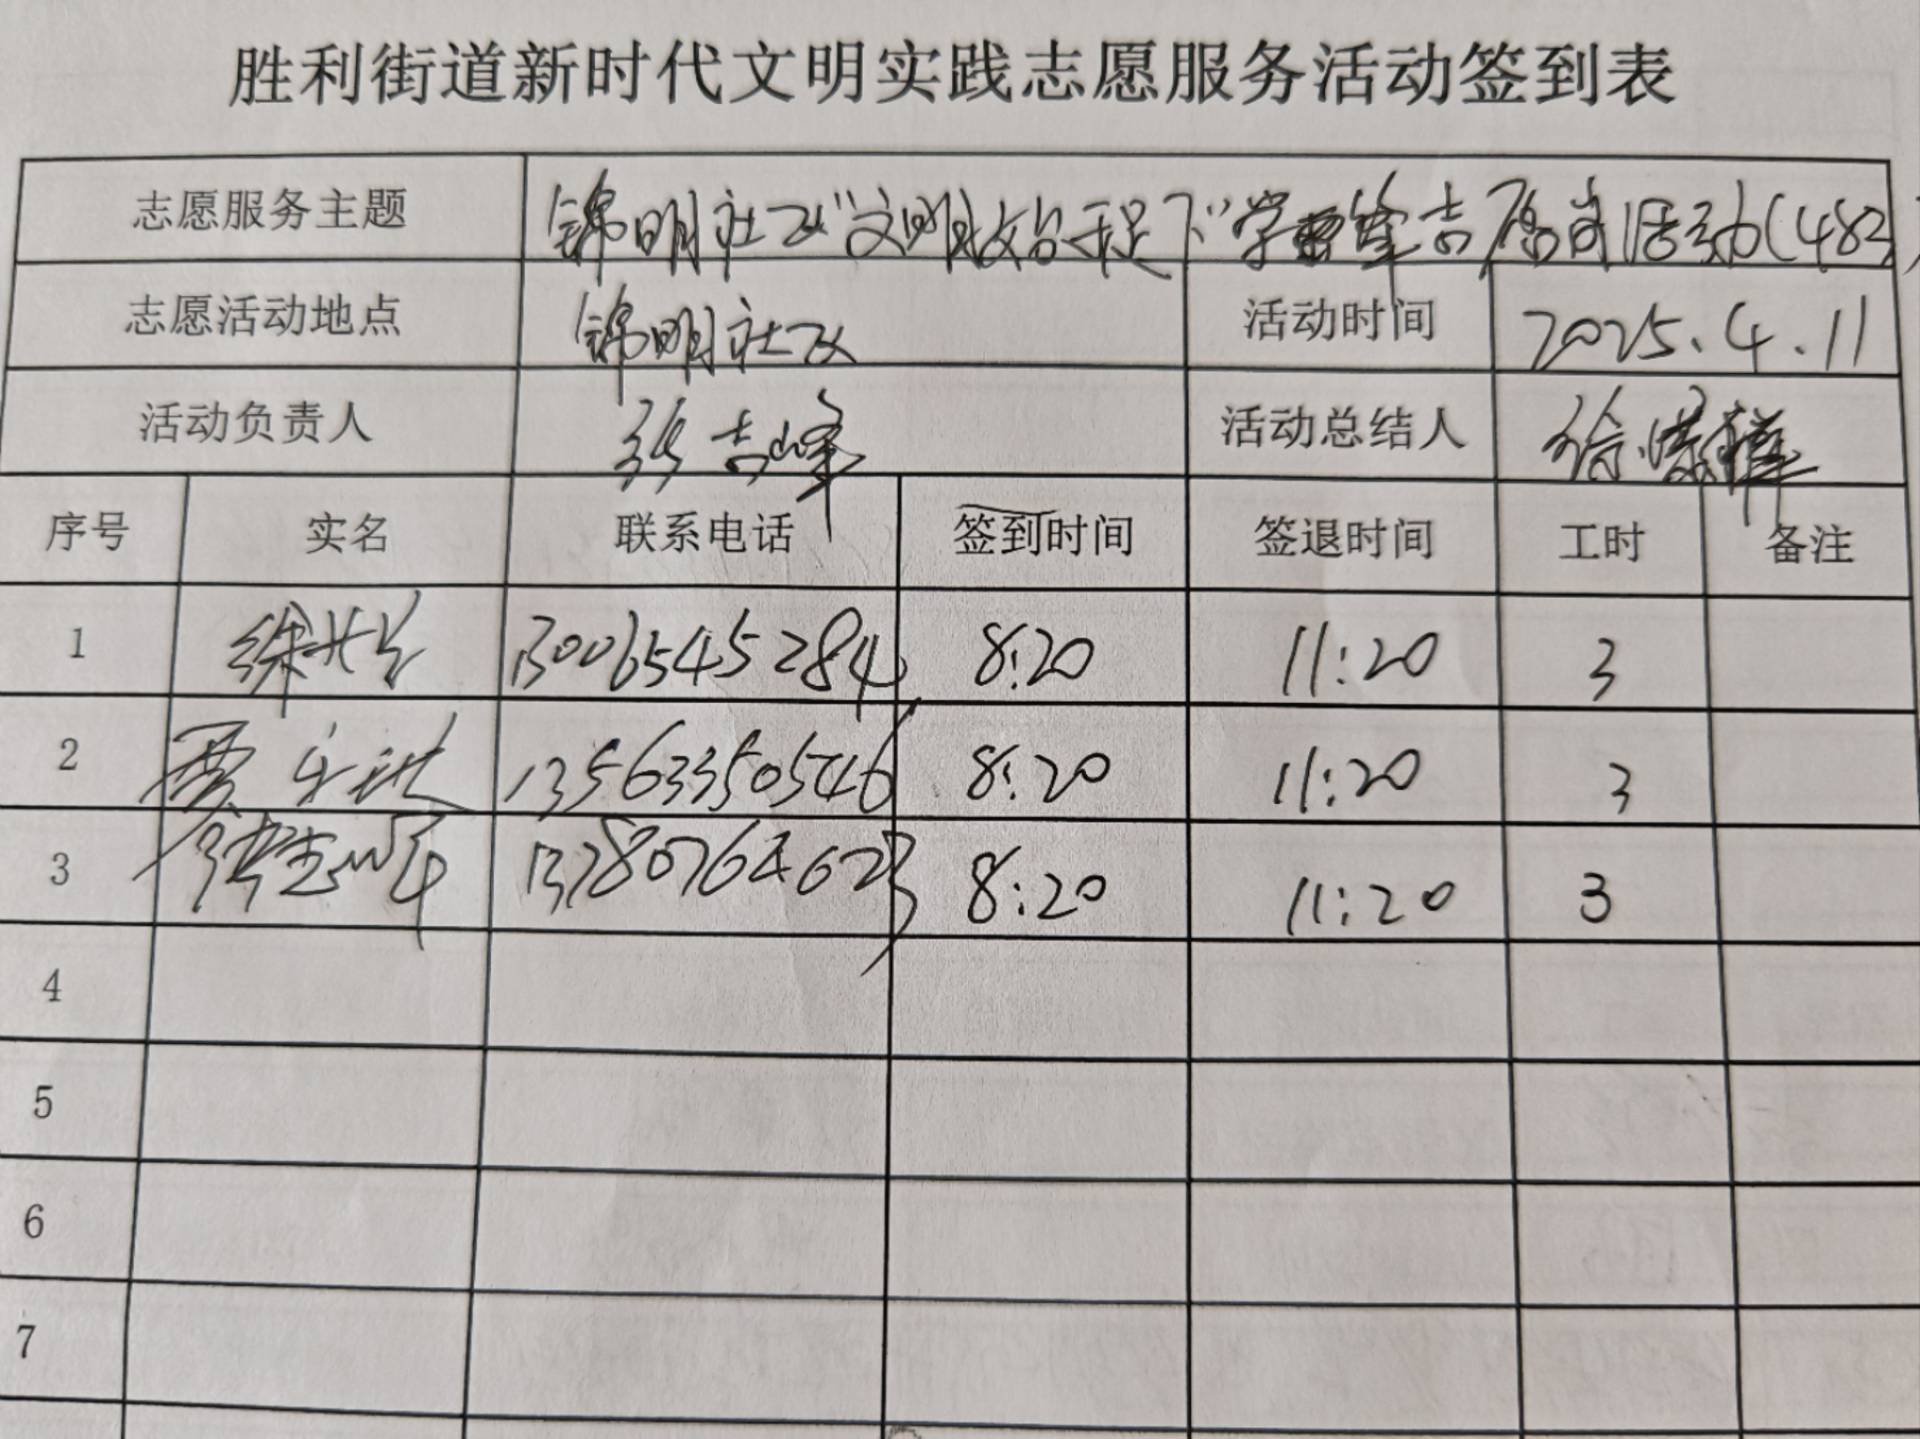 胜利街道新时代文明实践志愿服务活动签到表
志愿服务主题 锦明社区“文明始于足下”学雷锋志愿者活动(483)
志愿活动地点 锦明社区 活动时间 2025.4.11
活动负责人 张吉峰 活动总结人 徐
序号 实名 联系电话 签到时间 签退时间 工时 备注
1 13006545284 8:20 11:20 3
2 贾 13563350546 8:20 11:20 3
3 8:20 11:20 3
4
5
6
7